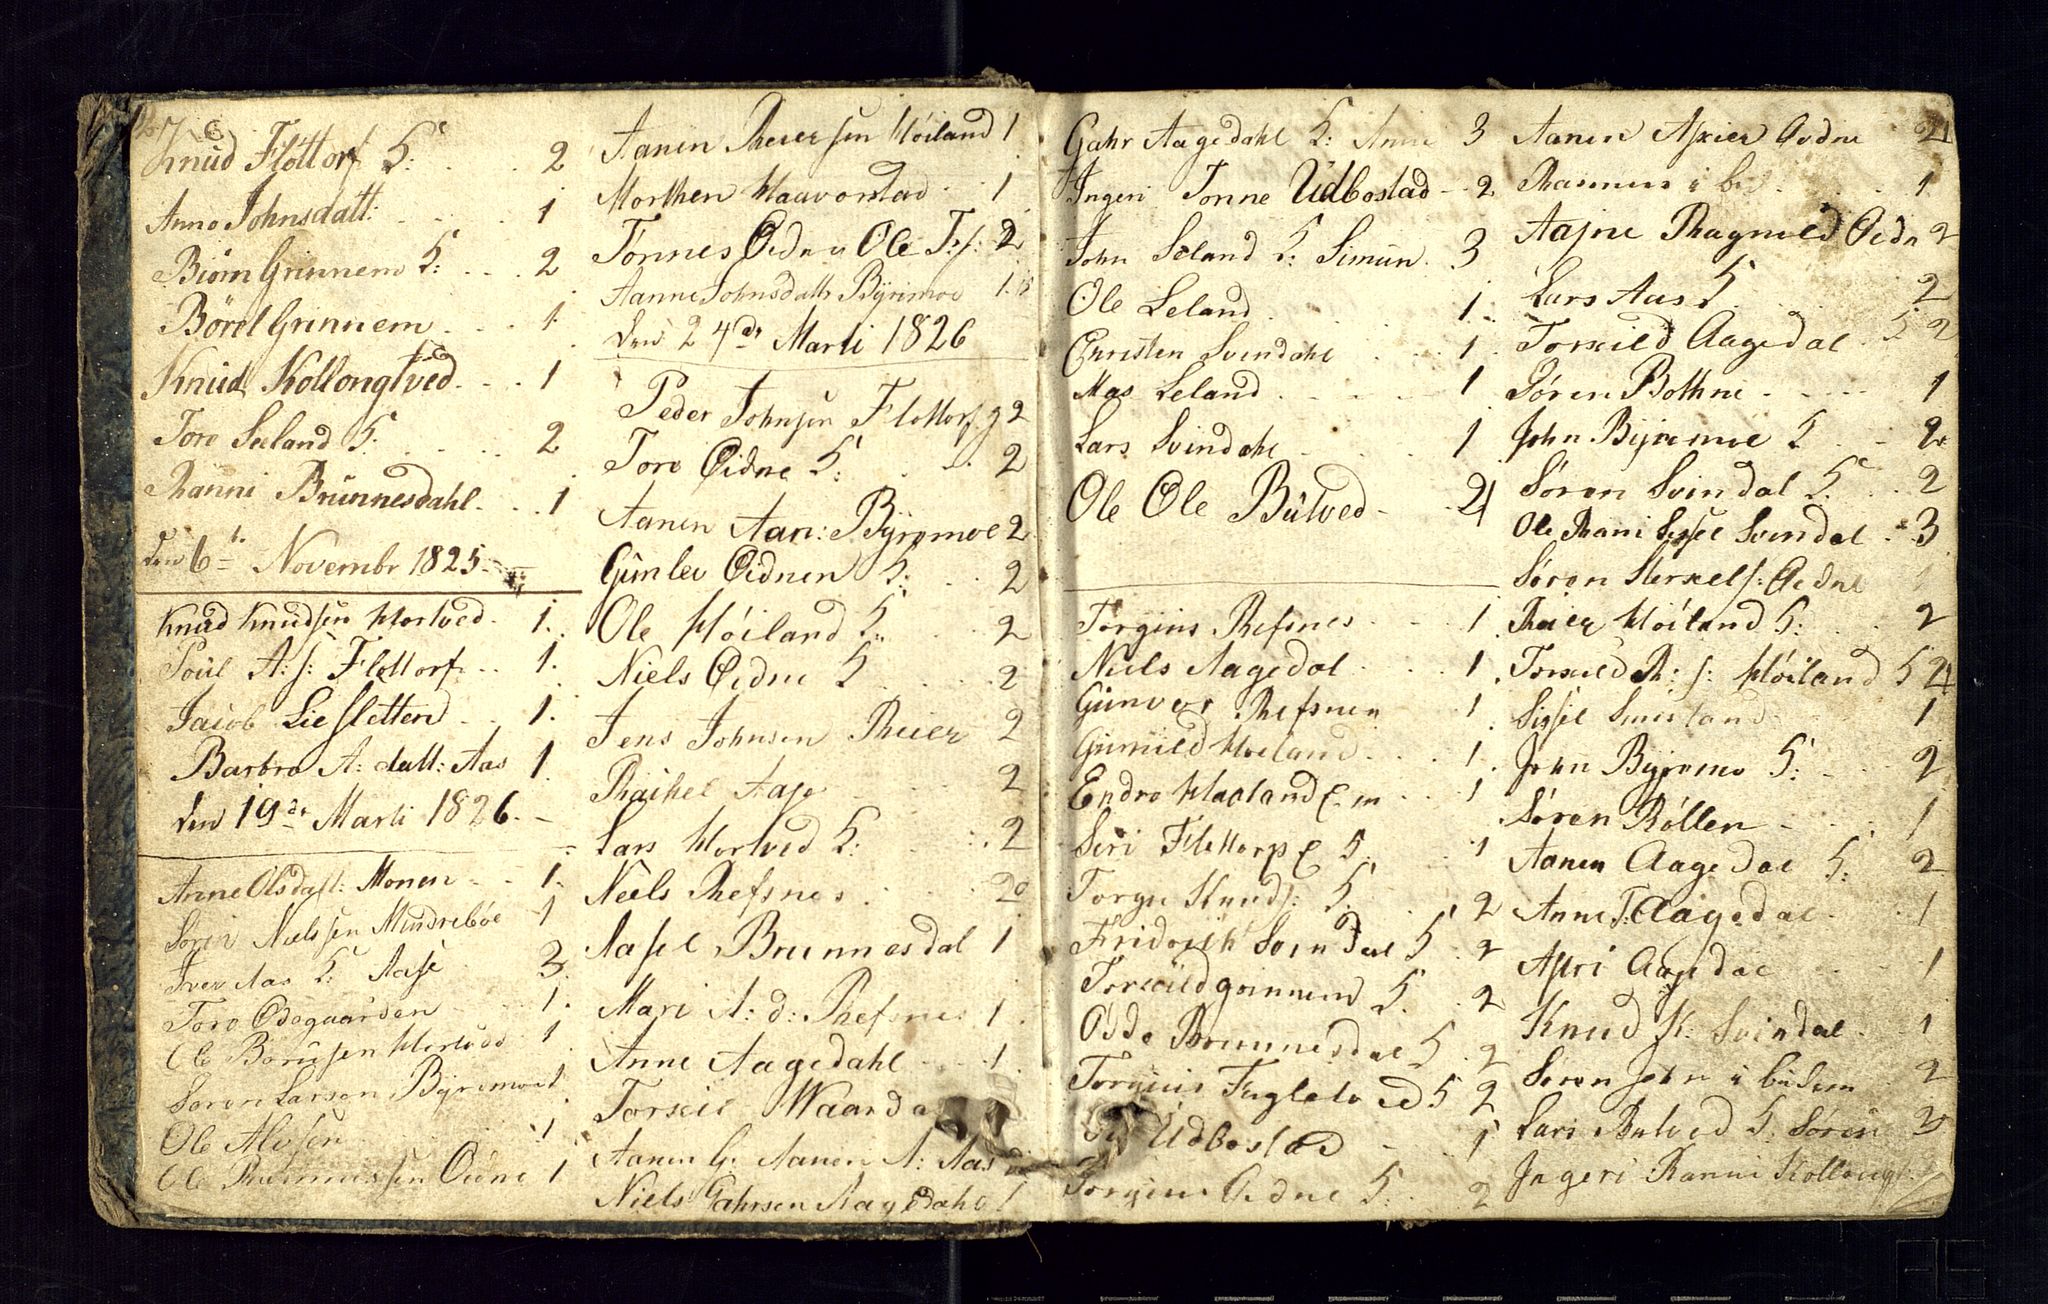 Knud Flottorf 5: 2
Anne Johnsdatt: 1
Biørn Grinnem 5: 2
Børel Grinnem 1
Knud Kollongtved 1
Tore Seland 5: 2
Ranni Brunnesdahl 1
den 6te Novembr 1825
Knud Knudsen Hortved 1
Poul A: s: Flottorf 1
Jacob Liesletten 1
Barbro A: datt: Aas 1
den 19de Marti 1826
Anne Olsdatt: Monen 1
Søren Nielssen Mindrebøe 1
Iver Aas 5: Aase 3
Tore Ødegaarden 1
Ole Børusen Hortved 1
Søren Larsen Byremoe 1
Ole Alvsen 1
Ole Rasmussen Øidne 1
Aanen Reiersen Høiland 1
Morthen Haavorstad 1
Tønnes Øidne Ole T: s: 2
Aanne Johnsdatt Byremoe 1
den 24de Marti 1826
Peder Johnsen Flottorf 2
Tore Øidne 5: 2
Aanen Aan: Byremoe 2
Gunlev Øidnen 5: 2
Ole Høiland 5: 2
Niels Øidne 5 2
Jens Johnsen Reier 2
Rachel Aase 2
Lars Hortved 5: 2
Niels Refsnes 2
Aasel Brunnesdal 1
Mari A: d: Refsnes 1
Anne Aagedahl 1
Torkil Waarda
Aanen G: Aanen A: Aas
Niels Gahrsen Aagedahl 1
Gahr Aagedahl 5: Anne 3
Ingeri Tonne Udbostad 2
John Seland 5: Simun 3
Ole Leland 1
Christen Svindahl 1
Mas Leland 1
Lars Svindahl 1
Ole Ole Butved 2
Torgius Refsnes 1
Niels Aagedol 1
Gunver Refsnen 1
Gunild Høiland 1
Endre Haaland 1
Siri Flottorp 5 1
Torgie Knuds: 5: 2
Fridrich Svindal 5 2
Torkild grinnem 5 2
Odde Brunnesdal 5 2
Torgius Fuglestved 5 2
Udbostad 1
Torgius Øidne 5: 2
Aanen Asrier Øidne 2
Rasmus i 1
Aasne Ragnild Øidn 2
Lars Aas 5 2
Torkild Aagedal 5 2
Søren Bothne 1
John Byremoe 5 2
Søren Svindal 5: 2
Ole Rani Sissel Svindal 3
Søren Terkels: Øidne 1
Reier Høiland 5: 2
Torkild R: s: Høiland 5 2
Sissel Smistand 1
John Byremo 5: 2
Søren Røllen 1
Aanen Aagedal 5: 2
Anne T: Aagedal 1
Asri Aagedal 1
Knud K: Svindal 1
Søren John i 2
Lars Butved 5: Søren 3
Ingeri Ranni Kollong